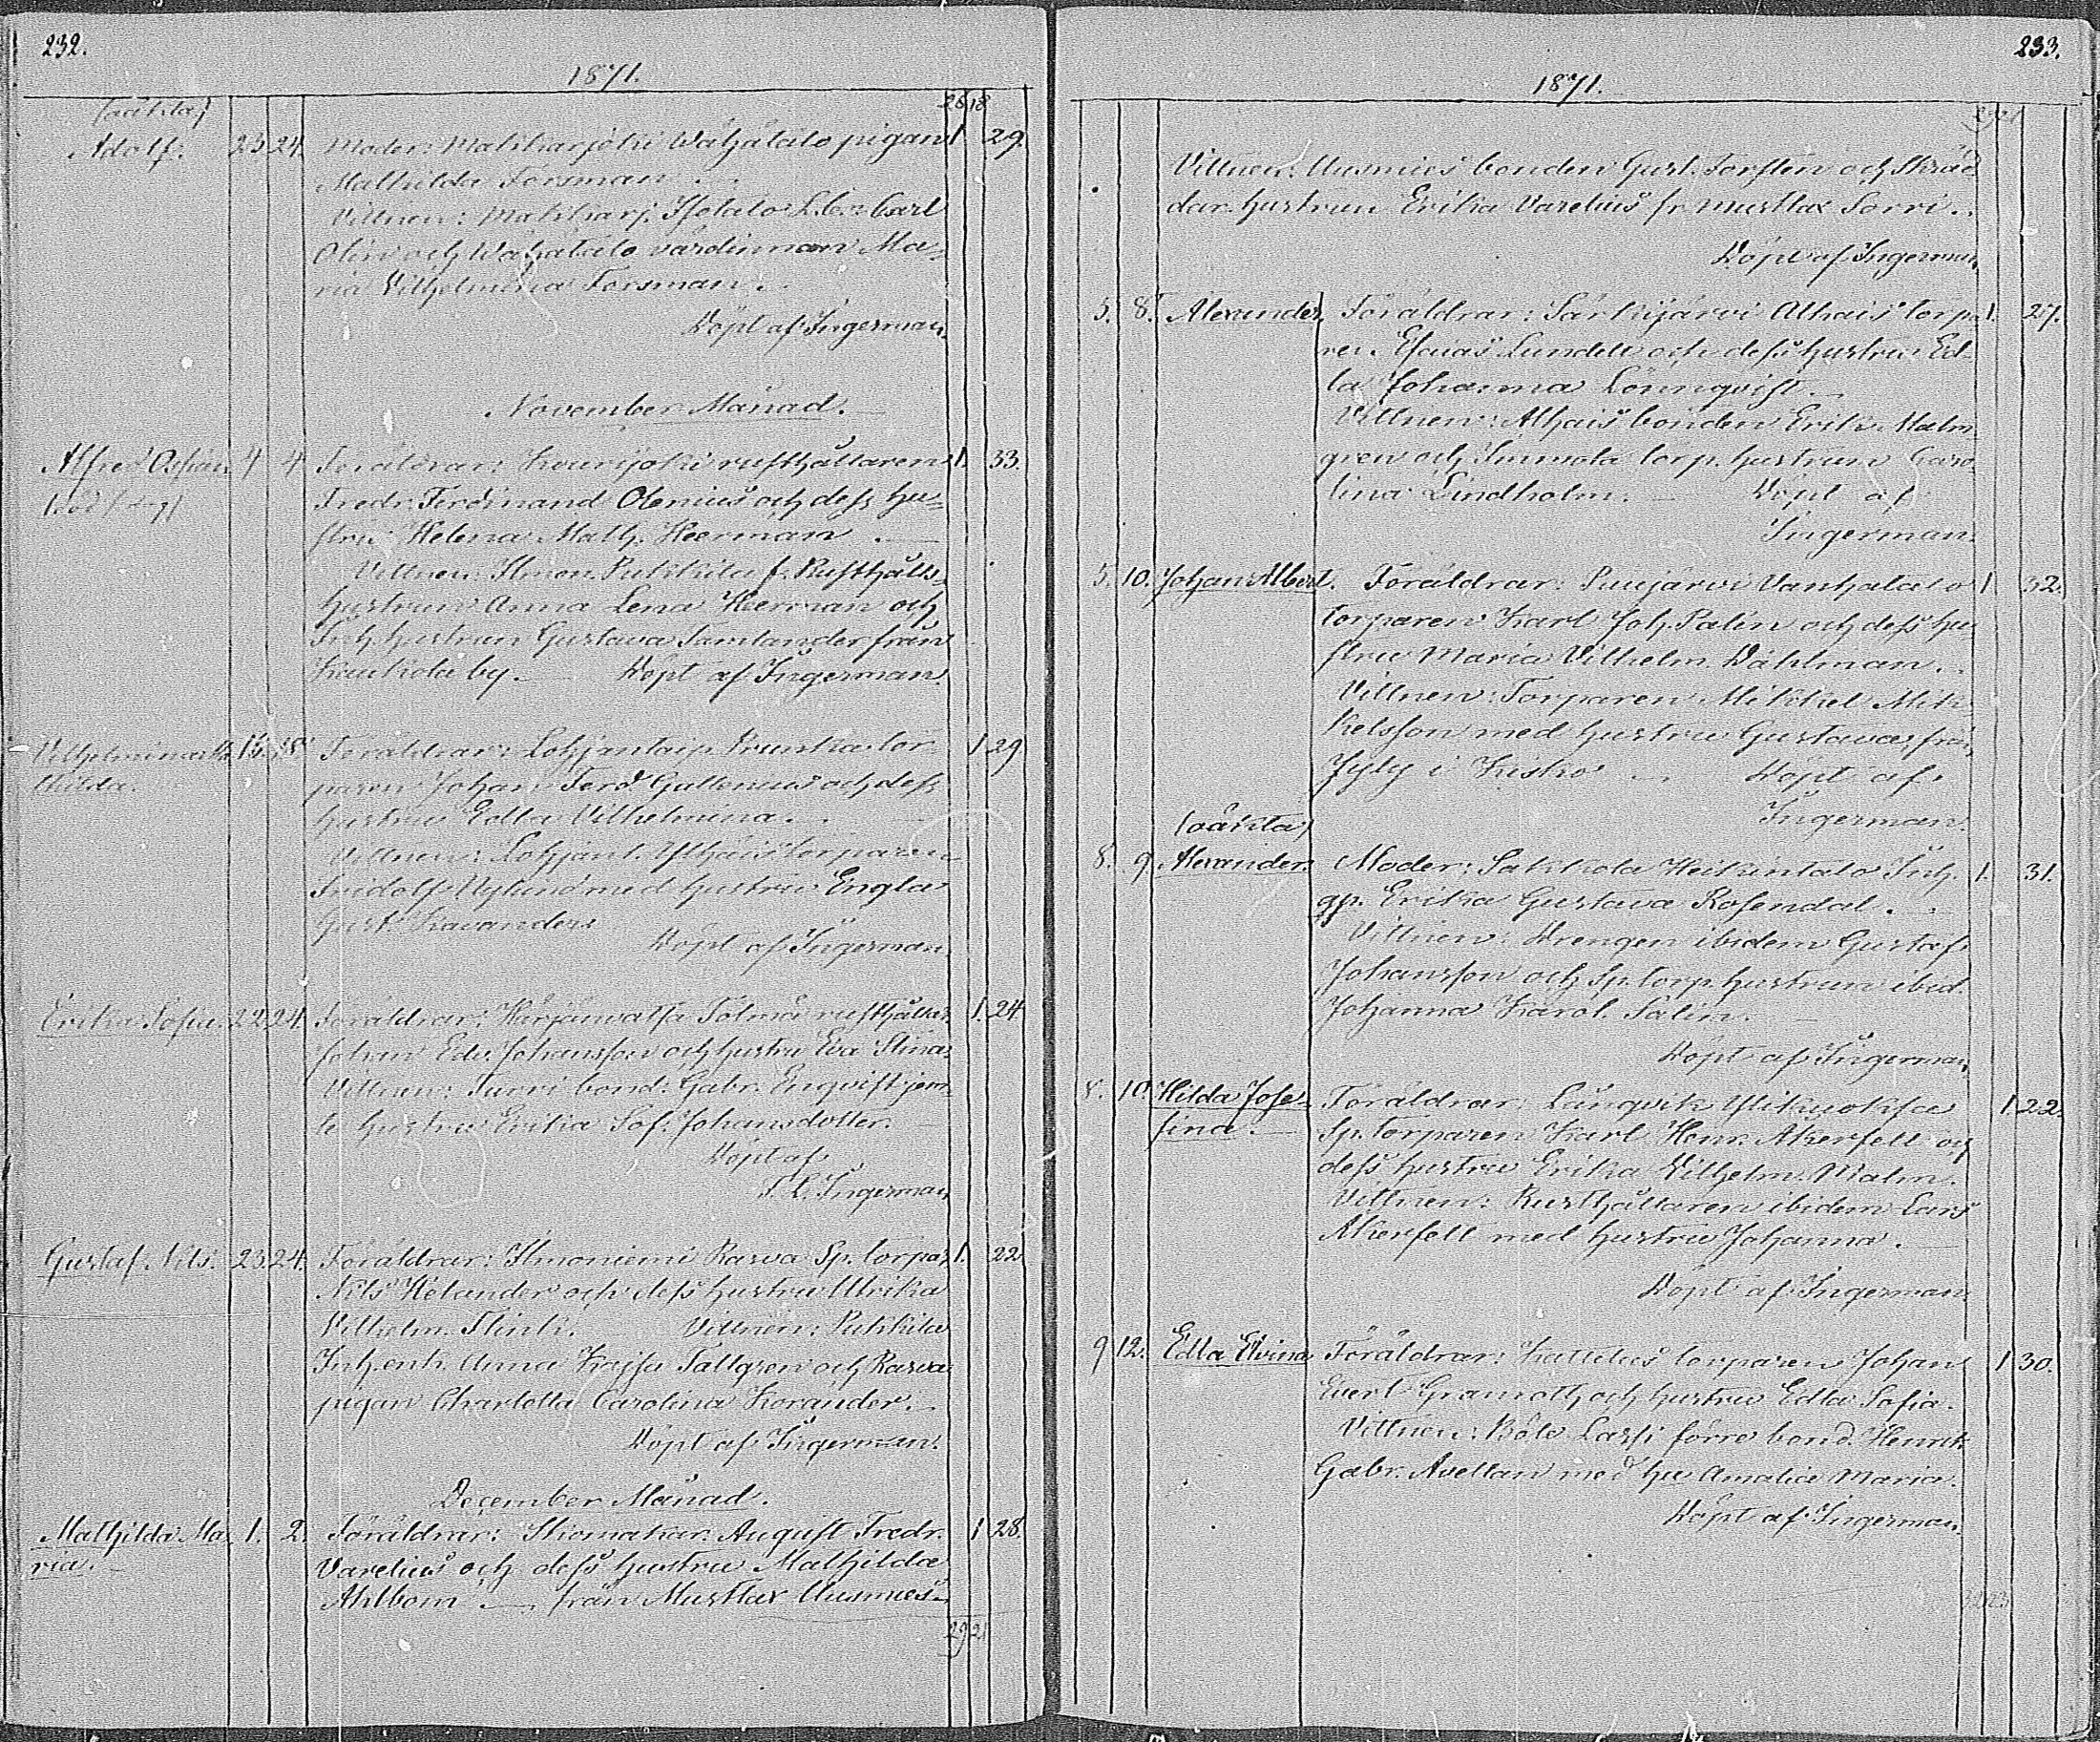 232.
1871.
(oäkta)
26 18
Adolf. 23 24. Moder: Makkarjoki Wähätalo pigan 1 29.
Mathilda Forsman.
Vittnen: Makkarj. Isotalo Carl
Olin och Wähätalo värdinnan Ma-
ria Vilhelmina Forsman.
Döpt af Ingerman.
November Månad.
Alfred Oskar 4 4 Föräldrar: Kourijoki rusthållaren 1. 33.
Fredr. Ferdinand Olenius och dess hu-
stru Helena Math. Heerman.
Vittnen: Ilmon. Pukkila f. Rusthålls-
hustrun Anna Lena Heerman och
Inh. hustrun Gustava Tamlander från
Kaukola by. Döpt af Ingerman.
Vilhelmina Ma- 15. 18. Föräldrar: Lohjantaip. tor- 1 29
thilda. paren Johan Ferd. Gallenius och dess
hustru Edla Vilhelmina.
Vittnen: Lohjant. torparen
Fridolf Nylund med hustru Engla
Gust. Kavander.
Döpt af Ingerman.
Erika Sofia. 22 24. Föräldrar: Härjänvatsa Tölmö rusthållar. 1. 24
Johan Edv. Johansson och hustru Eva Stina.
Vittnen: Surri bond. Gabr. Enqvist jem-
te hustru Erika Sof. Johansdotter.
Döpt af
Ingerman
Gustaf Nils. 23. 24. Föräldrar: Ilmoniemi Rasva Sp. torpar. 1. 22
Nils Helander och dess hustru Ulrika
Vilhelm. Flink. Vittnen: Pukkila
Inh. enk. Anna Kajsa Tallgren och Rasva
pigan Charlotta Carolina Korander.
Döpt af Ingerman.
December Månad.
Mathilda Ma- 1. 2. Föräldrar: Skomakar. August Fredr. 1 28.
ria. Varelius och dess hustru Mathilda
Ahlbom från Mustlax Uusmies
29 21
233.
1871.
29 21
Vittnen: Uusmies bonden Gust. Torsten och Skräd-
dar. hustrun Erika Varelius fr. Mustlax Sorri.
Döpt af Ingerman.
5. 8. Alexander. Föräldrar: Särkijärvi Alhais torpa- 1. 27.
ren Esaias Lundell och dess hustru Ed-
la Johanna Lönnqvist.
Vittnen: Alhais bonden Erik Malm-
gren och torp. hustrun Caro-
lina Lindholm. Döpt af
Ingerman.
5. 10. Johan Albert. Föräldrar: Puujärvi Vanhatalo 1 32.
torparen Karl Joh. Palin och dess hu-
stru Maria Vilhelm. Wåhlman.
Vittnen: Torparen Mikkel Mik-
kelsson med hustru Gustava från
Jyly i Kisko. Döpt af
Ingerman.
(oäkta)
8. 9 Alexander. Moder: Sakkola Heikintalo Inh. 1. 31.
qp. Erika Gustava Rosendal.
Vittnen: Drengen ibidem Gustaf
Johansson och Sp. torp. hustrun ibid.
Johanna Karol. Salin.
Döpt af Ingerman.
8. 10. Hilda Jose- Föräldrar: Långvik 1. 22.
fina. Sp. torparen Karl Henr. Åkerfelt och
dess hustru Erika Vilhelm. Malm.
Vittnen: Rusthållaren ibidem Lars
Åkerfelt med hustru Johanna.
Döpt af Ingerman.
9 12. Edla Elvina Föräldrar: Kattelus torparen Johan 1 30.
Evert Granroth och hustru Edla Sofia.
Vittnen: Böle Lassi förre bond. Henrik
Gabr. Avellan med hu. Amalia Maria.
Döpt af Ingerman.